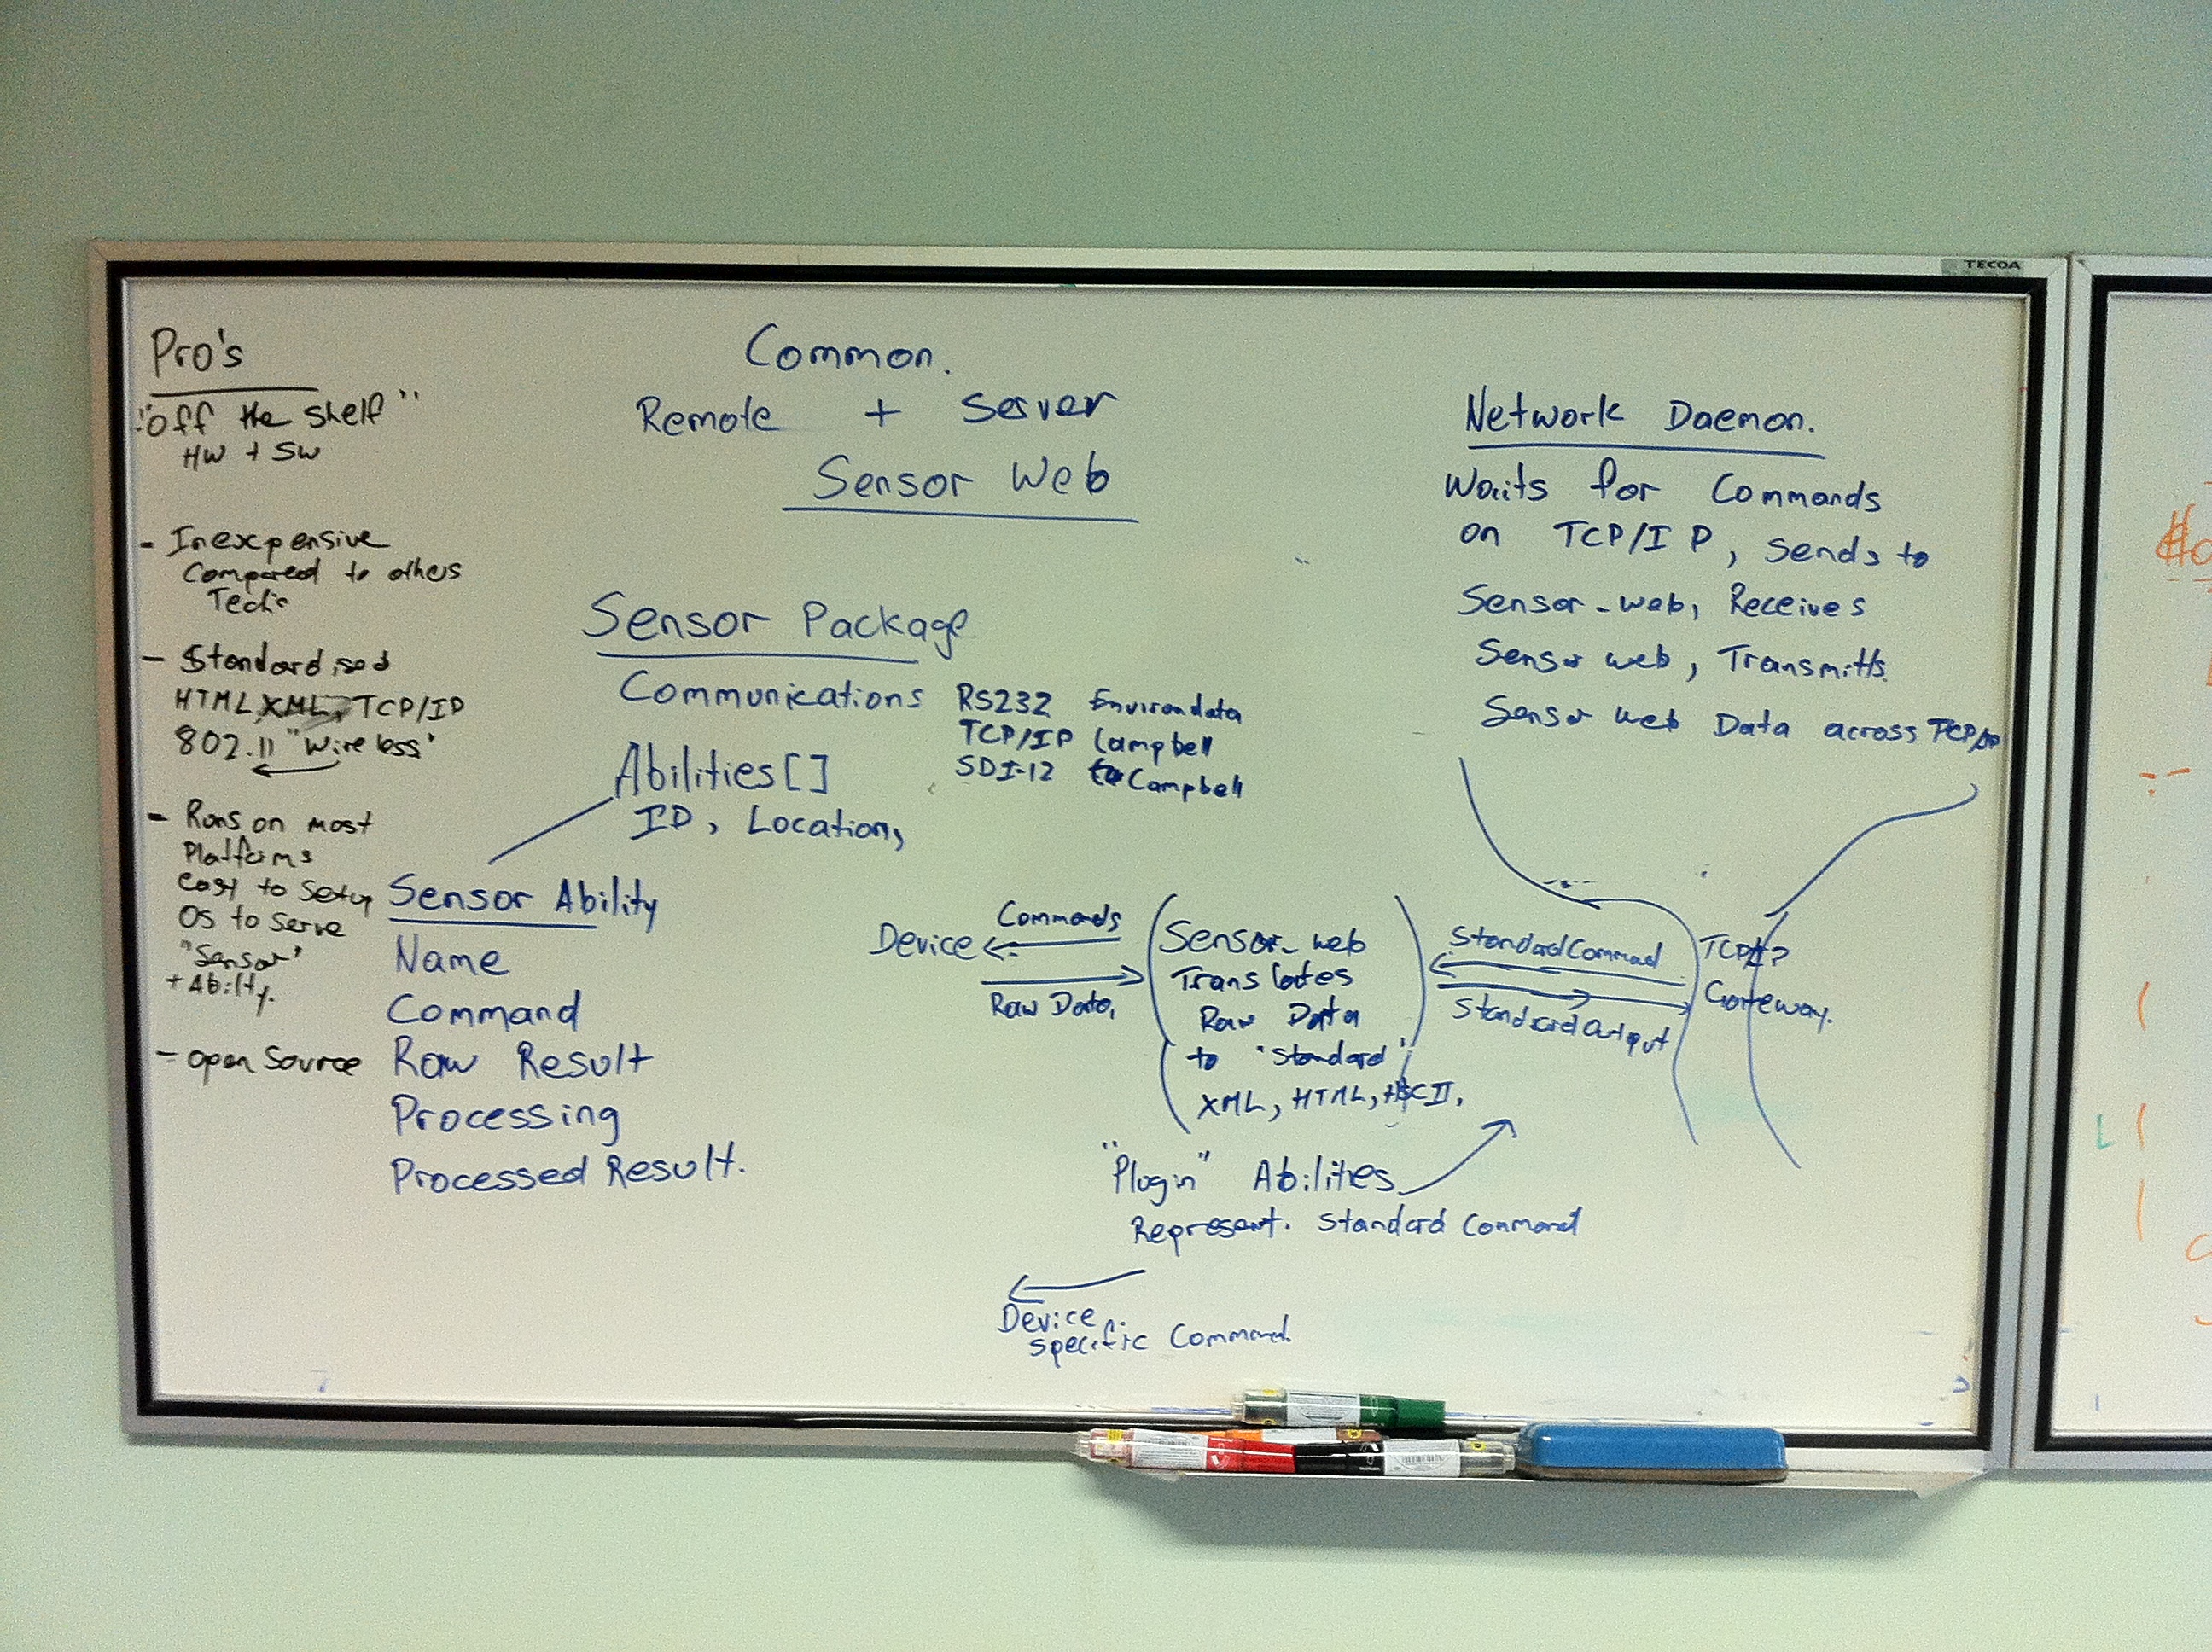 TECOA
Pro's
"Off the shelf"
HW + SW
- Inexpensive
Compared to others
- Standardised
HTML, XML, TCP/IP
802.11 "Wireless"
- Runs on most
Platforms
easy to setup
OS to Serve
"Sensor"
+ Abilty.
- open Source
Common.
Remote + Server
Sensor Web
Sensor Package
Communications RS232 Environdata
TCP/IP Campbell
SDI-12 Campbell
Abilities[]
ID, Location,
Sensor Ability
Name
Command
Raw Result
Processing
Processed Result.
Network Daemon.
Waits for Commands
on TCP/IP, sends to
Sensor-web, Receives
Sensor web, Transmitts
Sensor web Data across TCP/IP
Device
Commands
Raw Data,
Sensor-web
Translates
Raw Data
to "standard"
XML, HTML, ASCII,
Standard Command
Standard Output
Gateway.
"Plugin" Abilities
Represent. Standard Command
Device
specific Command